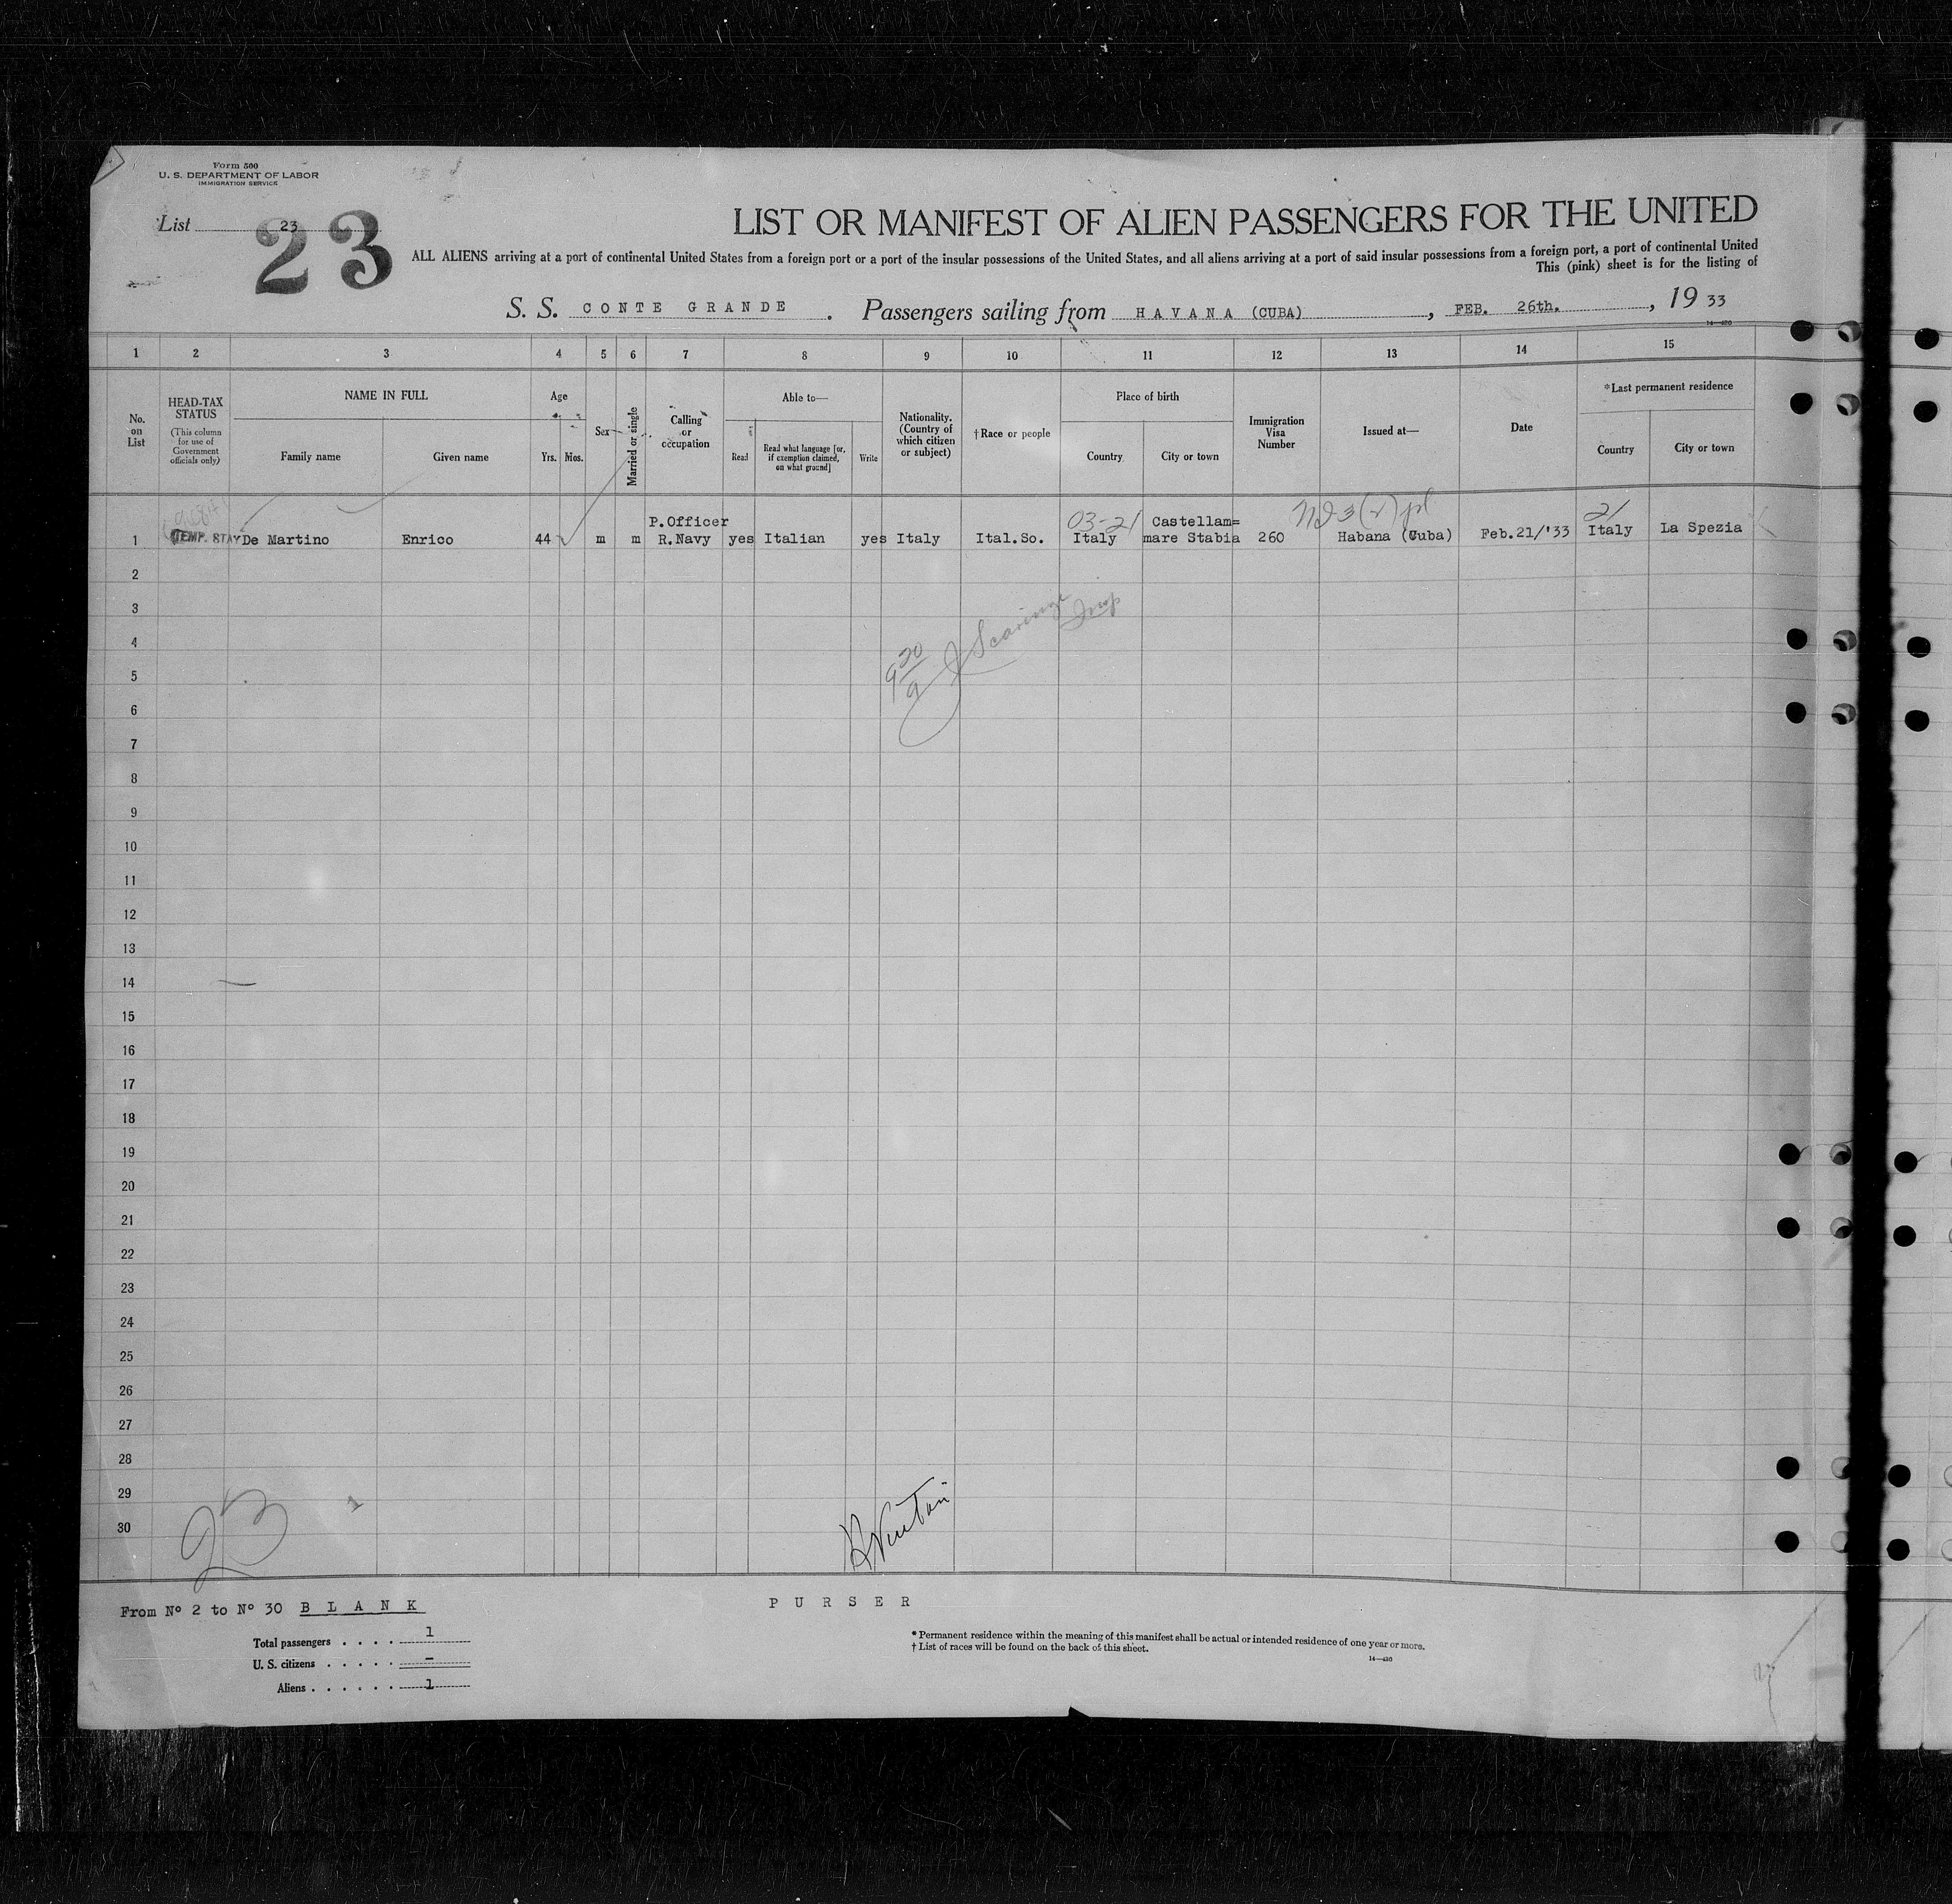 Form 500
U. S. DEPARTMENT OF LABOR
IMMIGRATION SERVICE
List 23
23
LIST OR MANIFEST OF ALIEN PASSENGERS FOR THE UNITED
ALL ALIENS arriving at a port of continental United States from a foreign port or a port of the insular possessions of the United States, and all aliens arriving at a port of said insular possessions from a foreign port, a port of continental United
This (pink) sheet is for the listing of
S. S. CONTE GRANDE . Passengers sailing from HAVANA (CUBA) , FEB. 26th. , 19 33
14—430
1 2 3 4 5 6 7 8 9 10 11 12 13 14 15
No. on List
HEAD-TAX STATUS
(This column for use of Government officials only)
NAME IN FULL
Family name
Given name
Age
Yrs. Mos.
Sex
Married or single
Calling or occupation
Able to—
Read
Read what language [or, if exemption claimed, on what ground]
Write
Nationality. (Country of which citizen or subject)
†Race or people
Place of birth
Country
City or town
Immigration Visa Number
Issued at—
Date
*Last permanent residence
Country
City or town
03-21
21
1 TEMP. STAY De Martino Enrico 44 m m P.Officer R.Navy yes Italian yes Italy Ital.So. Italy Castellam= mare Stabia 260 Habana (Cuba) Feb.21/'33 Italy La Spezia
2
3
4
5
6
7
8
9
10
11
12
13
14
15
16
17
18
19
20
21
22
23
24
25
26
27
28
29
30
J Scaringe Insp
23
1
From Nº 2 to Nº 30 BLANK
PURSER
Total passengers . . . . 1
U. S. citizens . . . . . –
Aliens . . . . . . 1
* Permanent residence within the meaning of this manifest shall be actual or intended residence of one year or more.
† List of races will be found on the back of this sheet.
14—430